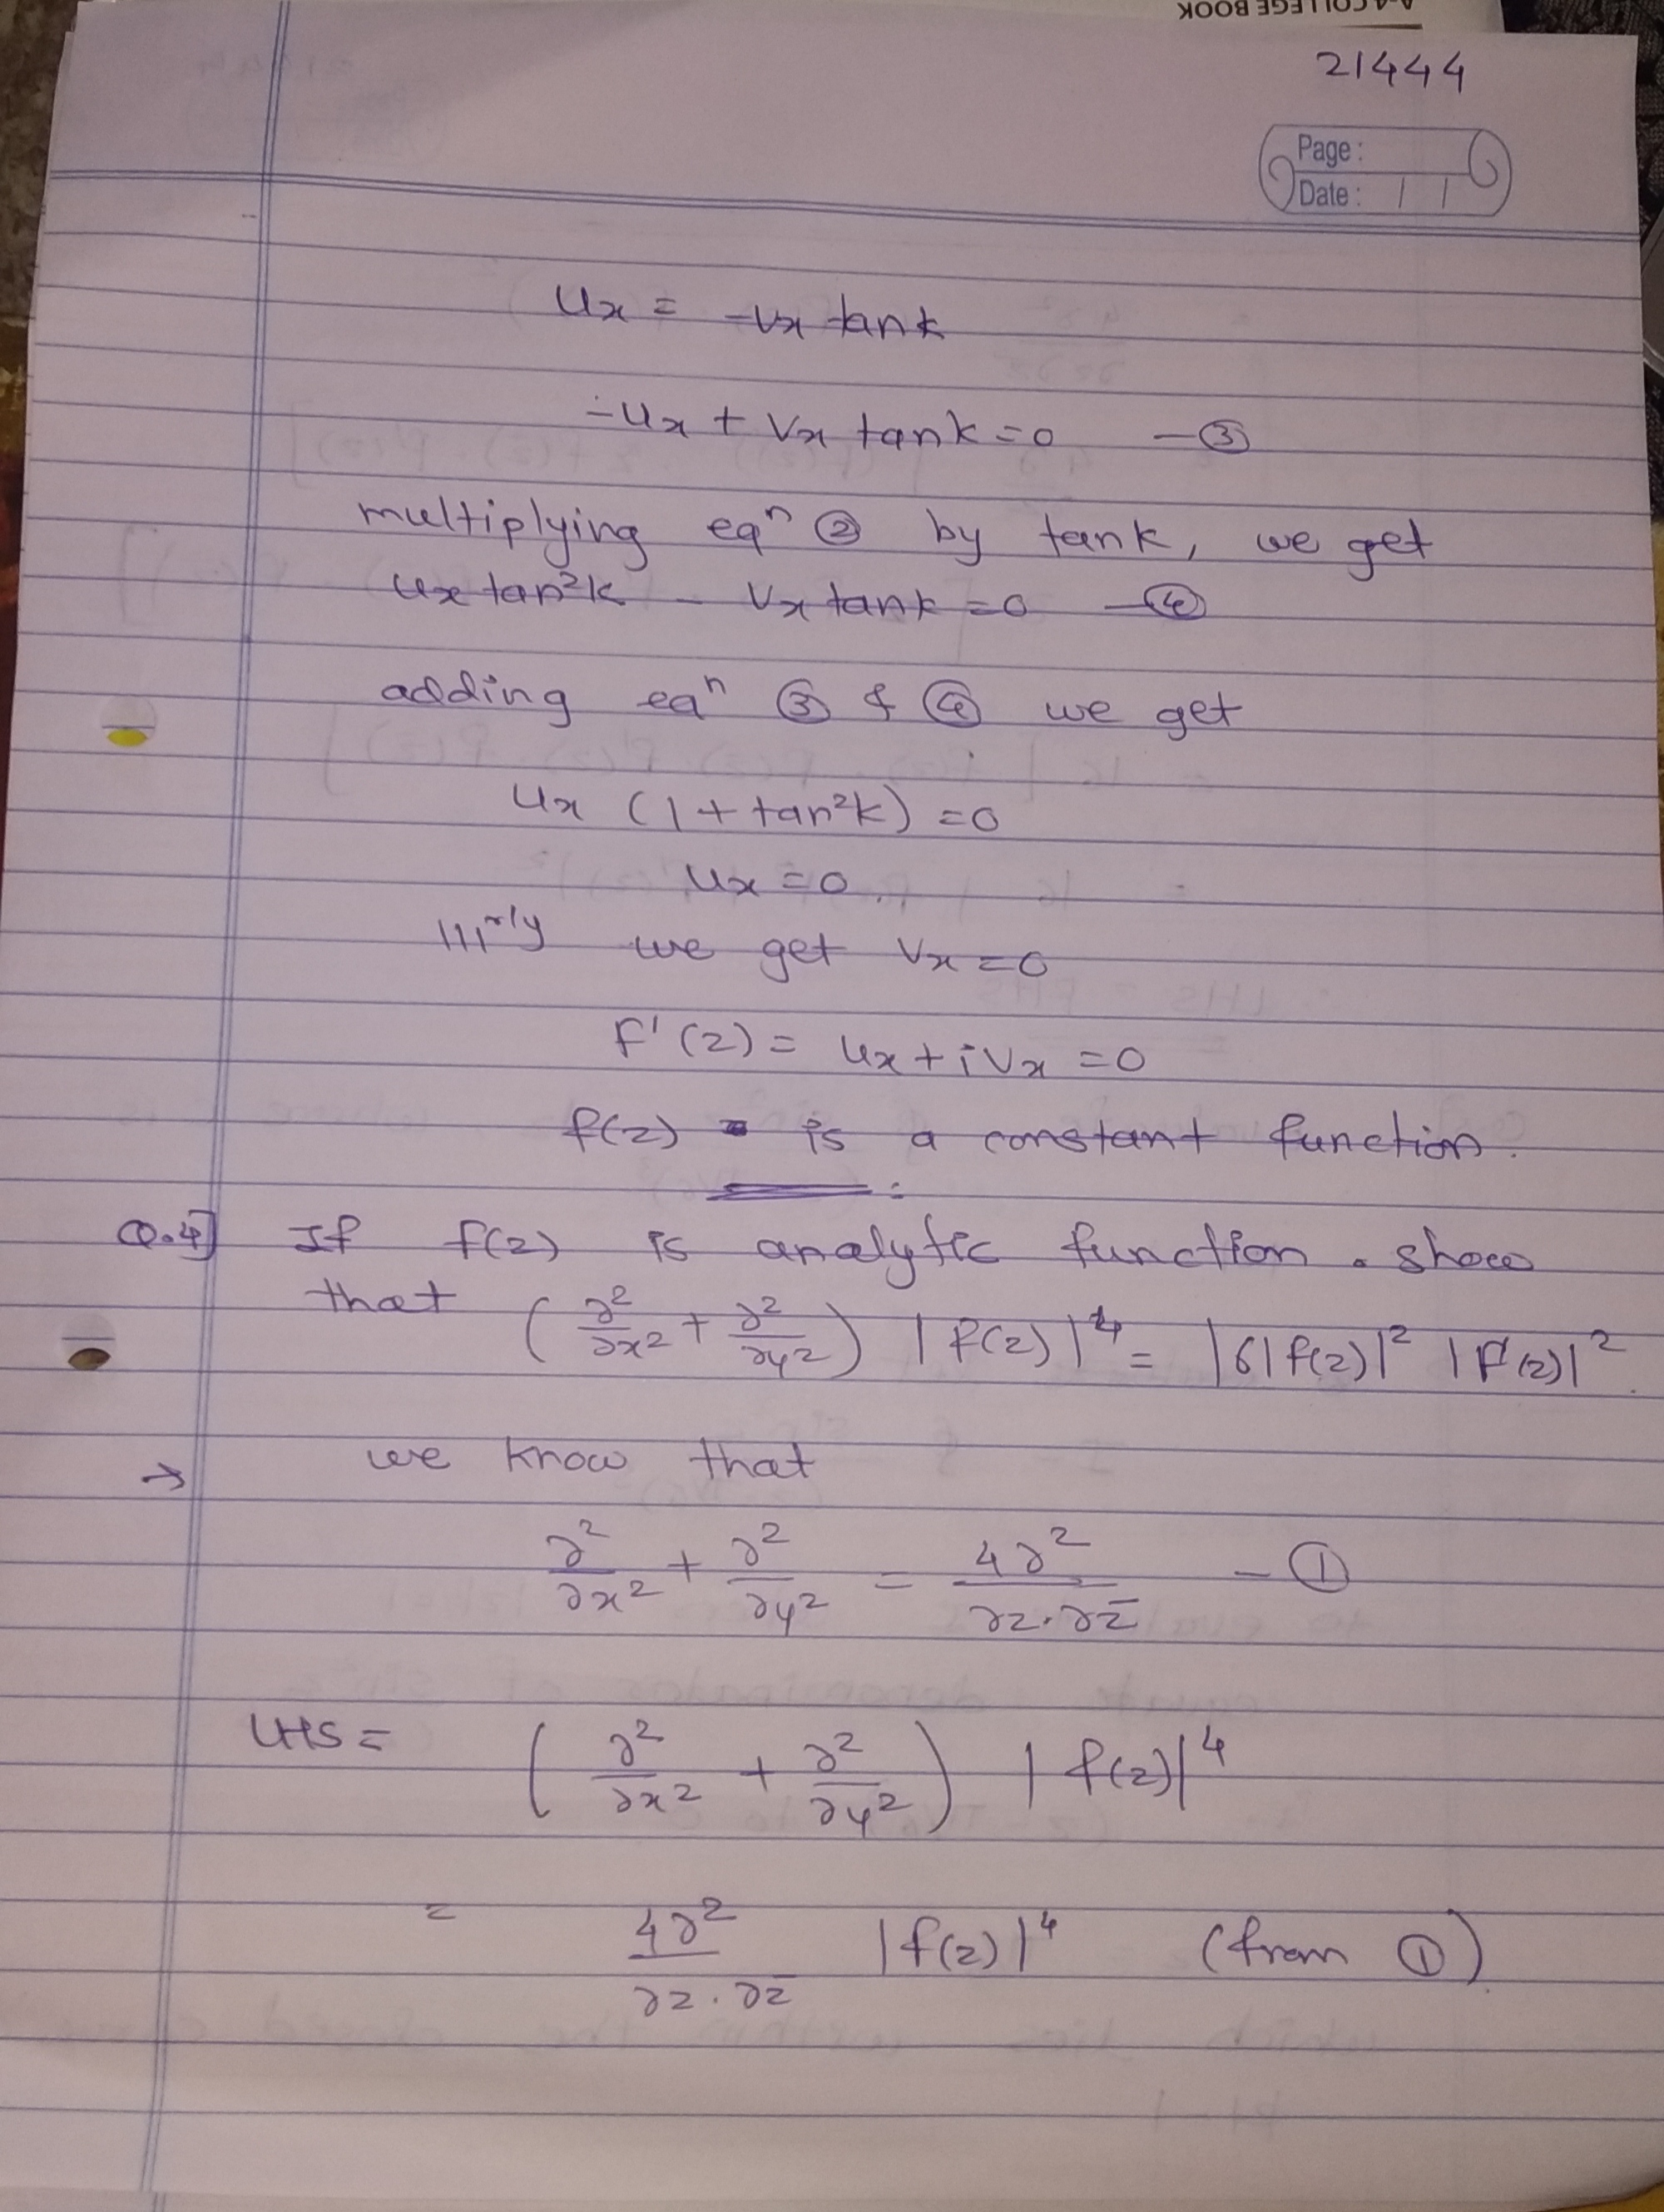 A-4 COLLEGE BOOK
21444
Page :
Date : / /
ux = -vx tank
-ux + vx tank = 0 — ③
multiplying eqⁿ ② by tank, we get
ux tan²k - vx tank = 0 — ④
adding eqⁿ ③ & ④ we get
ux (1 + tan²k) = 0
ux = 0
lllʳly we get vx = 0
f'(z) = ux + ivx = 0
f(z) is a constant function.
Q.4] If f(z) is analytic function. show
that (∂²/∂x² + ∂²/∂y²) |f(z)|⁴ = 16|f(z)|² |f'(z)|².
→ we know that
∂²/∂x² + ∂²/∂y² = 4∂²/∂z.∂z̄ — ①
LHS = (∂²/∂x² + ∂²/∂y²) |f(z)|⁴
= 4∂²/∂z.∂z̄ |f(z)|⁴ (from ①)